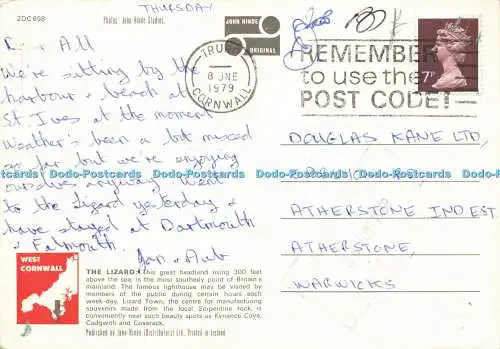 2DC668
Photos: John Hinde Studios.
THURSDAY
JOHN HINDE
ORIGINAL
TRURO
8 JNE
1979
CORNWALL
REMEMBER
to use the
POST CODE!
7P
Dear All
We're sitting by the
harbour & beach at
St Ives at the moment
Weather's been a bit mixed
so far but we're enjoying
ourselves anyway. Went
to the Lizard yesterday &
have stayed at Dartmouth
& Falmouth.
DOUGLAS KANE LTD,
RD,
ATHERSTONE IND EST
ATHERSTONE,
WARWICKS
Dodo-Postcards Dodo-Postcards Dodo-Postcards Dodo-Postcards
WEST
CORNWALL
THE LIZARD: This great headland rising 300 feet
above the sea, is the most southerly point of Britain's
mainland. The famous lighthouse may be visited by
members of the public during certain hours each
week-day. Lizard Town, the centre for manufacturing
souvenirs made from the local Serpentine rock, is
conveniently near such beauty spots as Kynance Cove,
Cadgwith and Coverack.
Published by John Hinde (Distributors) Ltd. Printed in Ireland